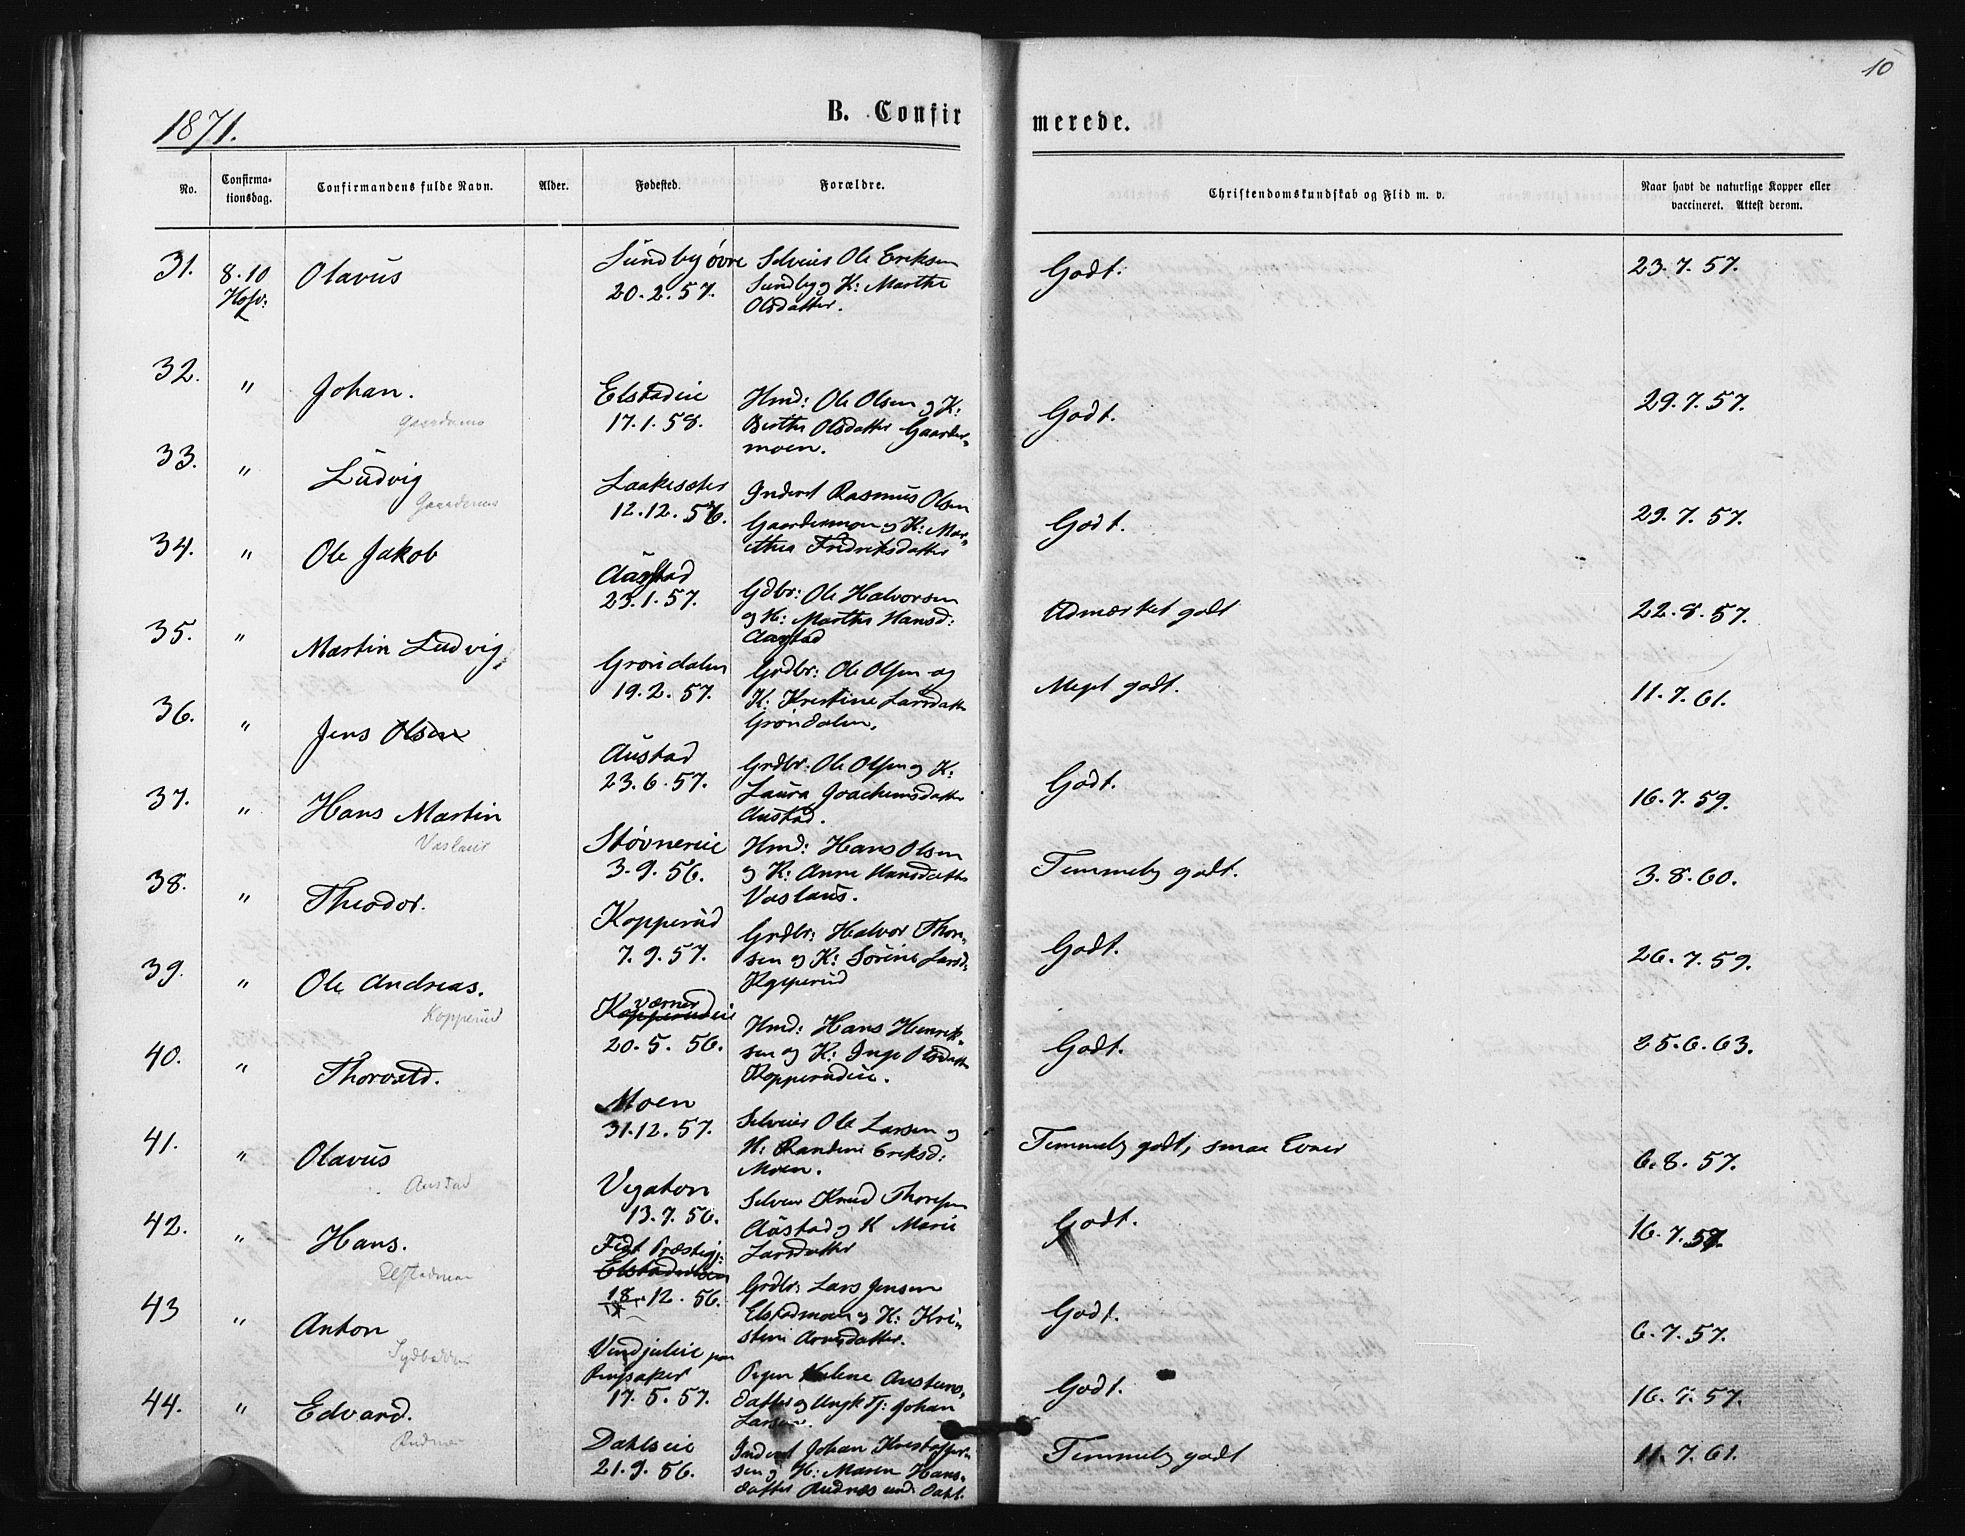 10
1871.
B. Confirmerede.
No.
Confirmationsdag.
Confirmandens fulde Navn.
Alder.
Fødested.
Forældre.
Christendomskundskab og Flid m. v.
Naar havt de naturlige Kopper eller
vaccineret. Attest derom.
31. 8.10 Olavus Sundby øvre Selveier Ole Eriksen Godt. 23.7.57.
20.2.57. Sundby og K: Marthe
Olsdatter.
32. " Johan. Elstadeie Hmd: Ole Olsen og K: Godt. 29.7.57.
17.1.58. Berthe Olsdatter Gaarder-
moen.
33. " Ludvig Laakesæter Inderst Rasmus Olsen Godt. 29.7.57.
12.12.56. Gaardermoen og K: Mar-
thea Fredriksdatter
34. " Ole Jakob Aastad Gdbr: Ole Halvorsen Udmærket godt 22.8.57.
23.1.57. og K: Marthe Hansd:
Aastad
35. " Martin Ludvig Grøndalen Grdbr: Ole Olsen og Meget godt. 11.7.61.
19.2.57. K: Kristine Larsdatter
Grøndalen.
36. " Jens Olsen Austad Grdbr: Ole Olsen og K: Godt. 16.7.59.
23.6.57. Laura Joachimsdatter
Austad.
37. " Hans Martin Støvnereie Hmd: Hans Olsen Temmelig godt. 3.8.60.
3.9.56. og K: Anne Hansdatter
38. " Theodor. Kopperud Grdbr: Halvor Thore- Godt. 26.7.59.
7.9.57. sen og K: Sørine Larsd:
Kopperud
39. " Ole Andreas. Kværner Hmd: Hans Henrik- Godt. 25.6.63.
Kopperud 20.5.56. sen og K: Inge Olsdatter
Kopperudeie.
40. " Thorvald. Moen Selveier Ole Larsen og Temmelig godt, smaa Evner 6.8.57.
31.12.57. K: Randine Eriksd:
Moen.
41. " Olavus 13.7.56. Selveier Knud Thoresen Godt. 16.7.57.
Austad Austad og K Marie
Larsdatter
42. " Hans. Elstadmoen Grdbr: Lars Jensen Godt. 6.7.57.
18.12.56. Elstadmoen og K: Kri-
stine Arnesdatter.
43 " Anton Ringsaker Pigen Helene Austens- Godt. 16.7.57.
17.5.57. datter og Ungk: Johan
Larsen.
44. " Edvard. Dahlseie Inderst Johan Kristoffer- Temmelig godt 11.7.61.
21.9.56. sen og K: Maren Hans-
datter